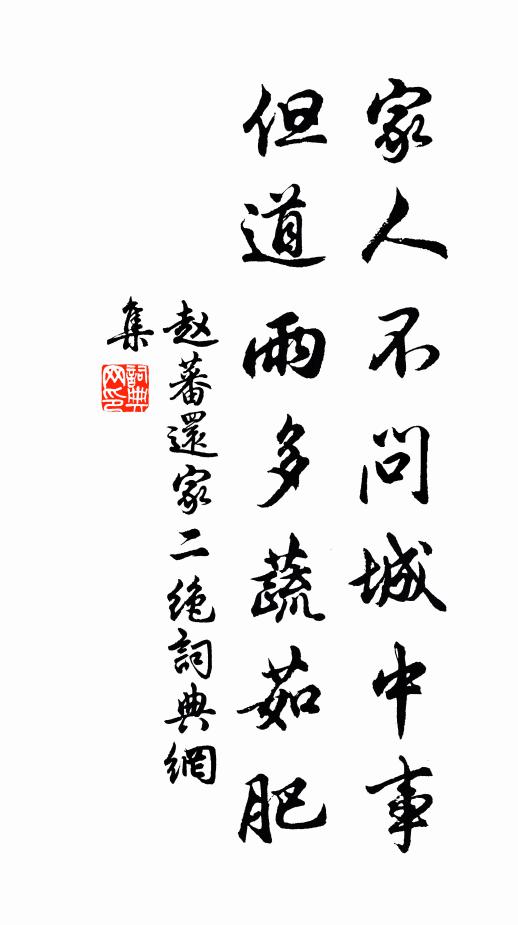 家人不问城中事
但道雨多蔬茹肥
赵蕃還家二绝詞典網
集
詞典网印